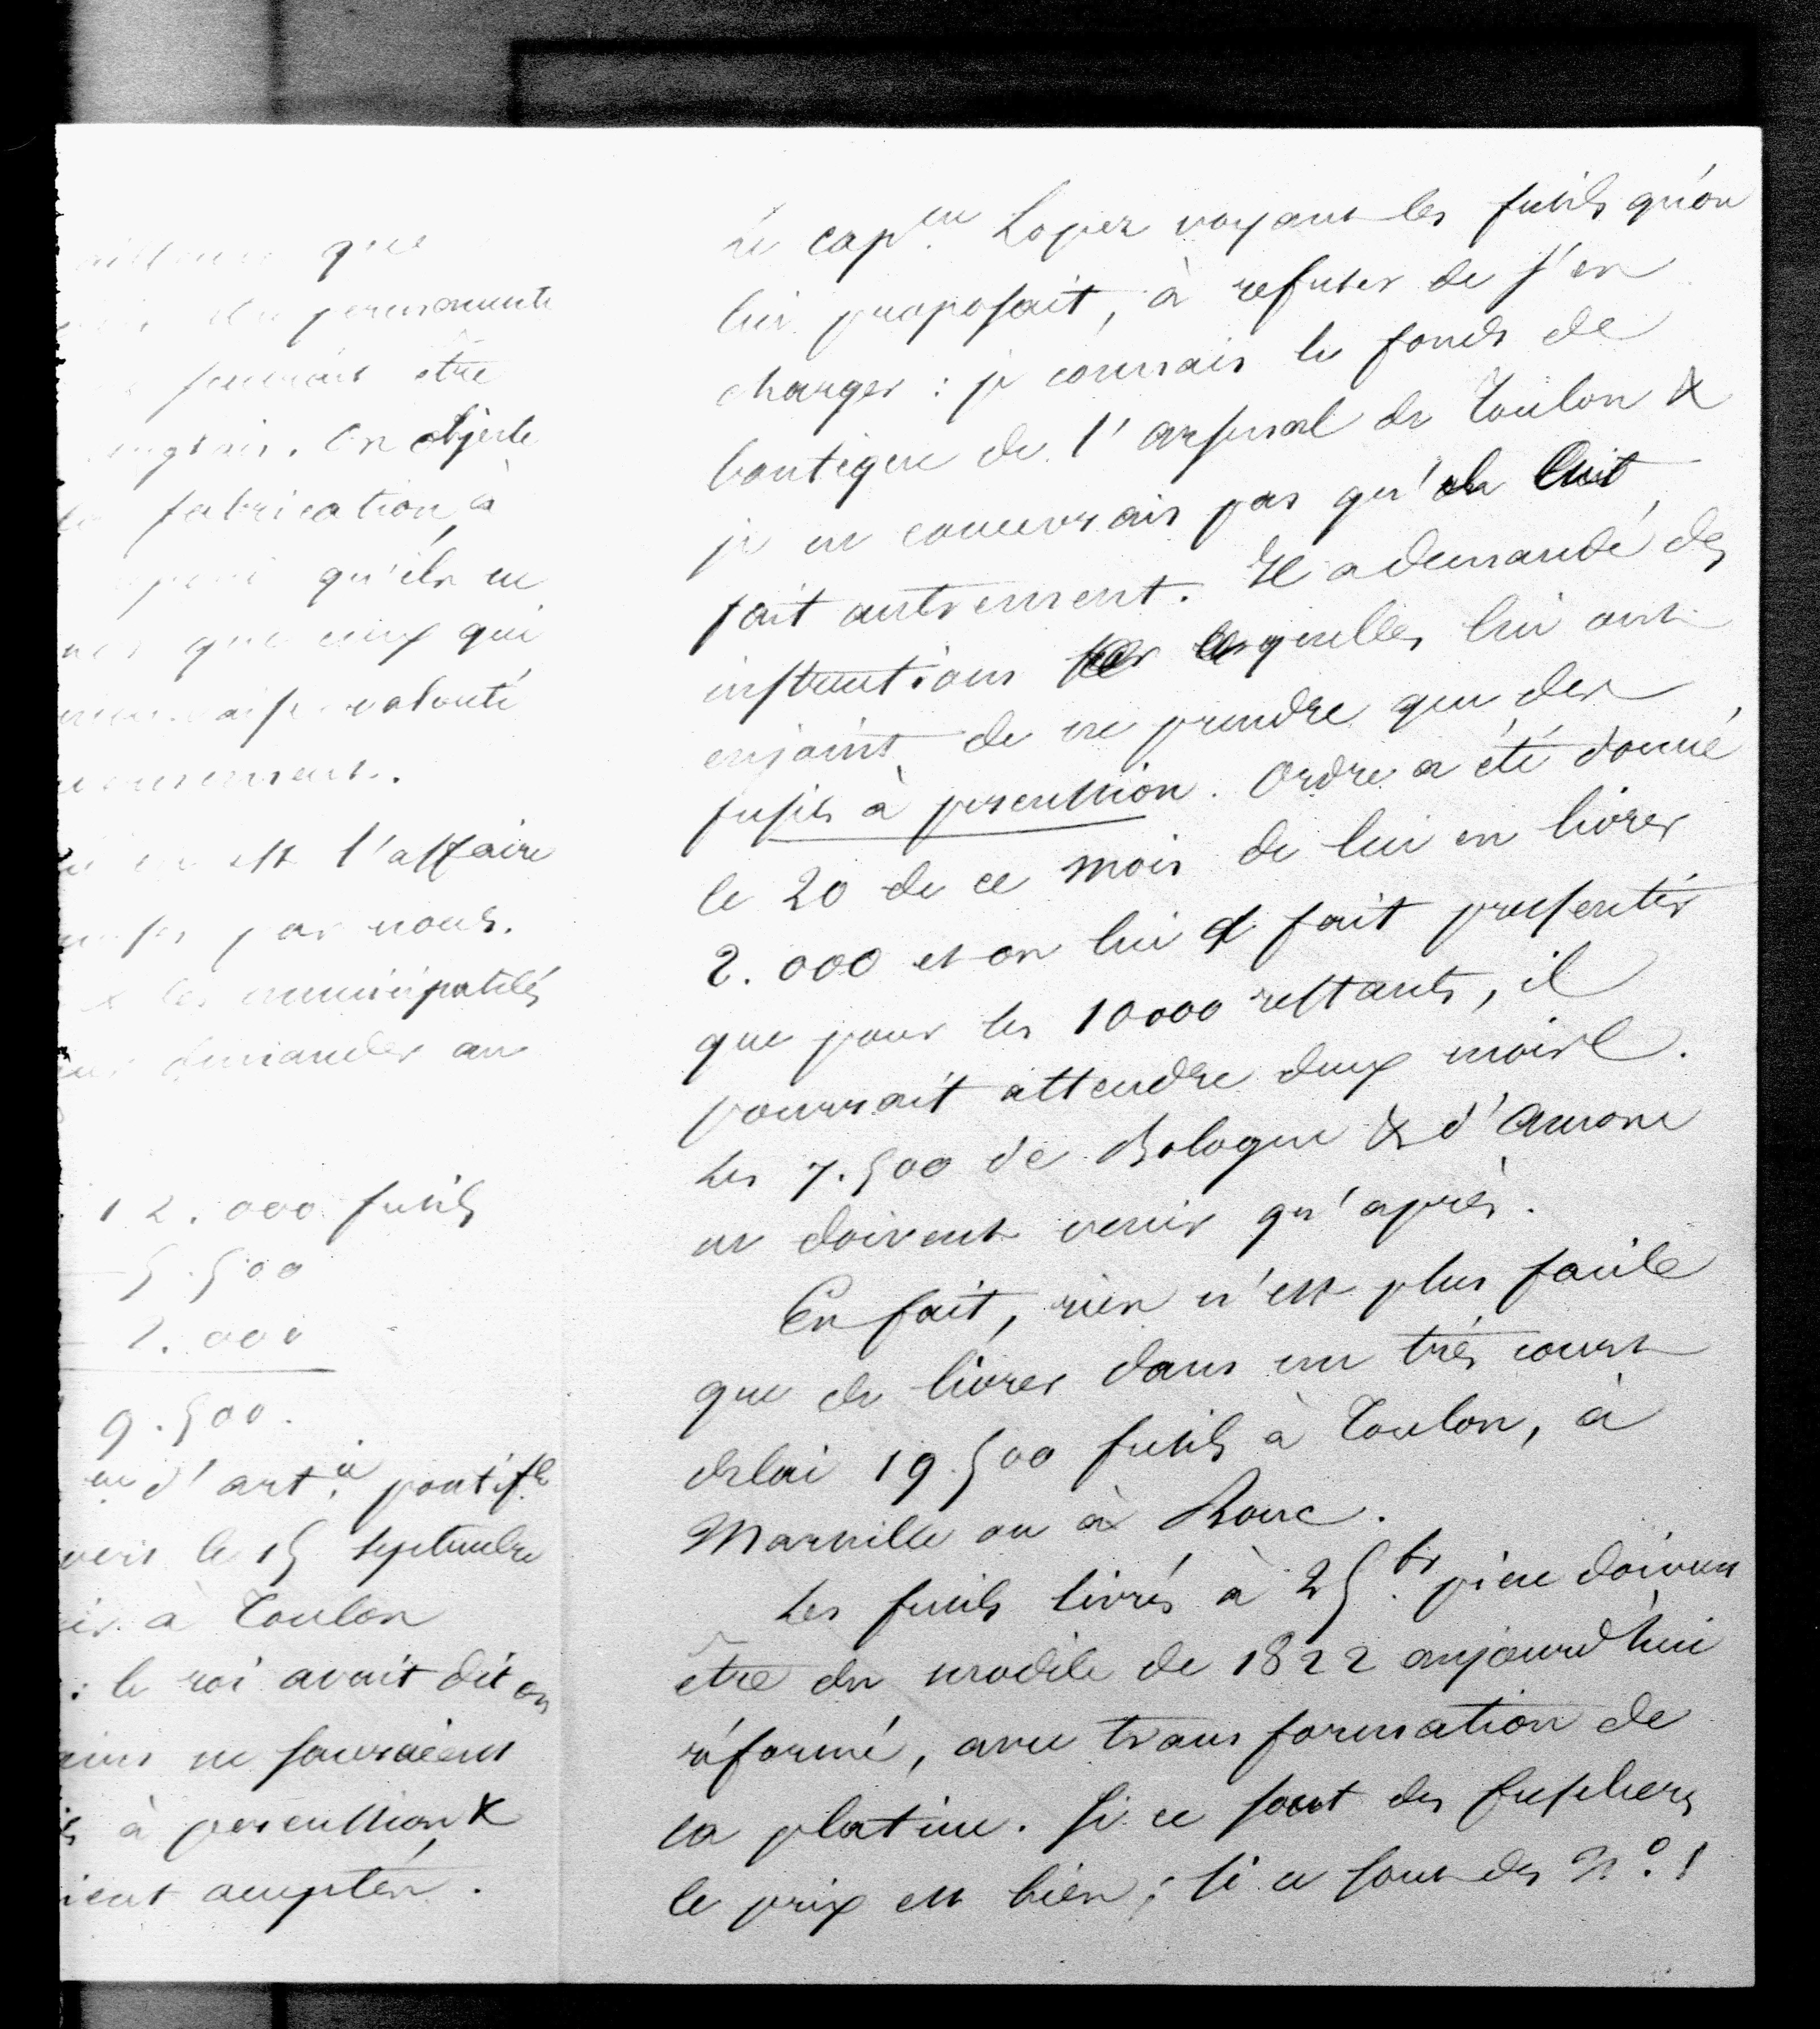 que
permanente
sauraient être
anglais. On objecte
fabrication, à
qu'ils en
que ceux qui
volonté
en est l'affaire
par nous.
& les municipalités
demander au
12.000 fusils
5.500
2.000
9.500.
d'art.ie pontif.le
vers le 15 septembre
à Toulon
: le roi avait dit on
ne sauraient
à percussion &
ient acceptés.
Le cap.ne Lopez voyant les fusils qu'on
lui proposait, à refuser de s'en
charger : je connais le fonds de
boutique de l'arsenal de Toulon &
je ne concevrais pas qu'on l'eut
fait autrement. Il a demandé des
instructions lesquelles lui ont
enjoint de ne prendre que des
fusils à percussion. Ordre a été donné
le 20 de ce mois de lui en livrer
2.000 et on lui a fait pressentir
que pour les 10000 restants, il
pourrait attendre deux mois.
Les 7.500 de Bologne & d'Ancone
ne doivent venir qu'après.
En fait, rien n'est plus facile
que de livrer dans un très court
delai 19.500 fusils à Toulon, à
Marseille ou à Rome.
Les fusils livrés à 25.fr pièce doivent
être du modèle de 1822 aujourd'hui
réformé, avec transformation de
la platine. Si ce sont des fusiliers
le prix est bien ; si ce sont des N.o 1